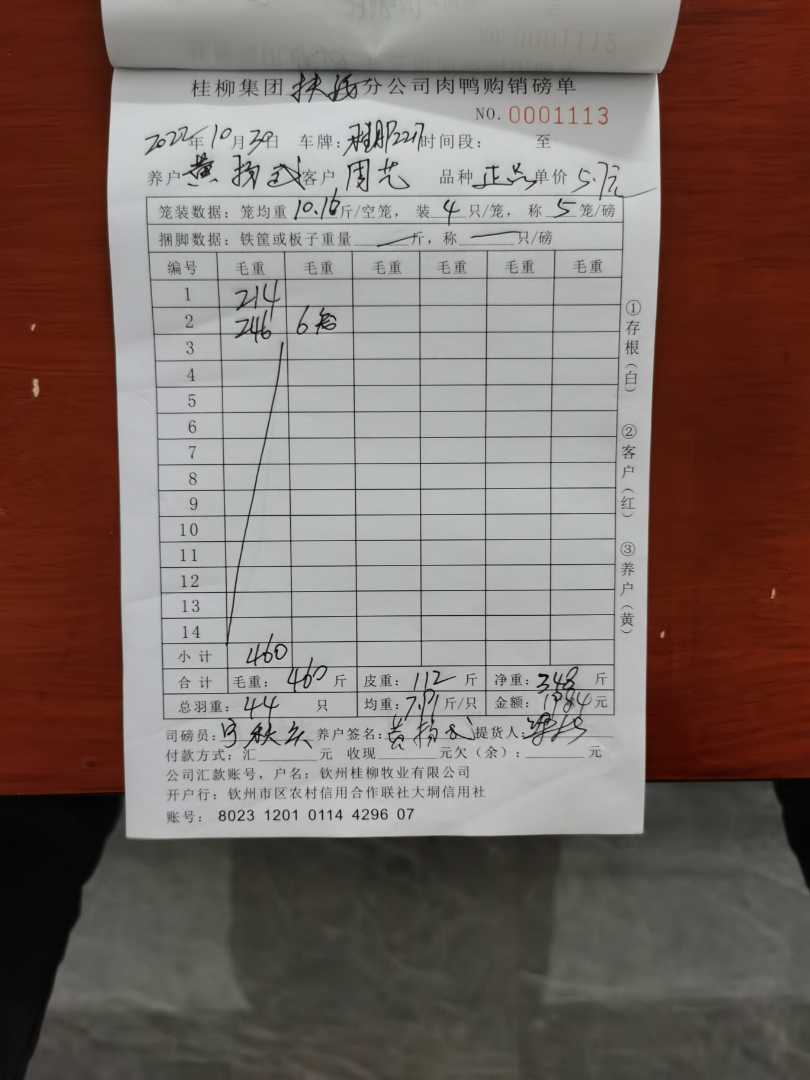 0001113
桂柳集团 扶绥 分公司肉鸭购销磅单
NO.0001113
2022年10月30日 车牌: 桂 2217 时间段: 至
养户 黄 客户 周艺 品种 正品 单价 5.7元
笼装数据: 笼均重 10.16 斤/空笼, 装 4 只/笼, 称 5 笼/磅
捆脚数据: 铁筐或板子重量 — 斤, 称 — 只/磅
编号 毛重 毛重 毛重 毛重 毛重 毛重
1 214
2 246 6笼
3
4
5
6
7
8
9
10
11
12
13
14
小计 460
合计 毛重: 460 斤 皮重: 112 斤 净重: 348 斤
总羽重: 44 只 均重: 7.91 斤/只 金额: 1984 元
司磅员: 养户签名: 黄 提货人:
付款方式: 汇 元 收现 元欠(余): 元
公司汇款账号, 户名: 钦州桂柳牧业有限公司
开户行: 钦州市区农村信用合作联社大垌信用社
账号: 8023 1201 0114 4296 07
①存根(白)
②客户(红)
③养户(黄)